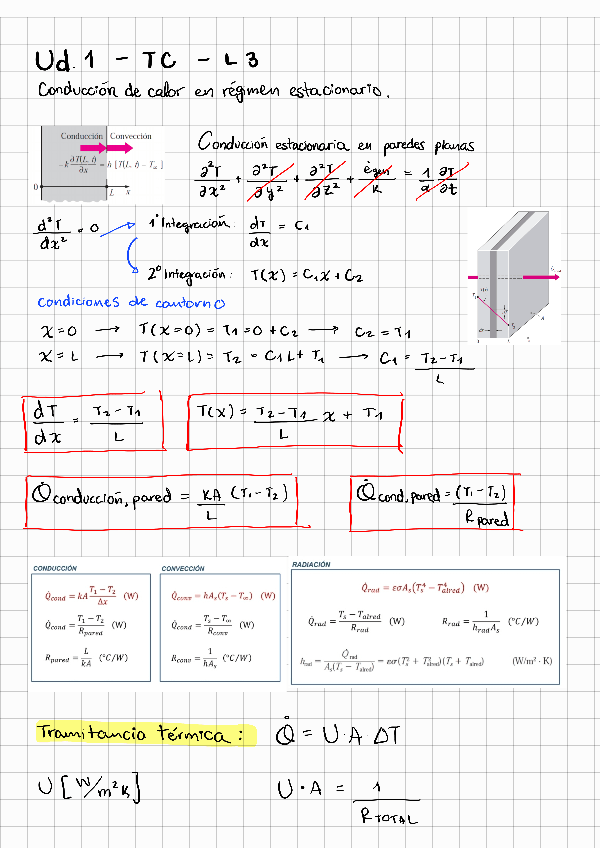 Ud. 1 - TC - L3
Conducción de calor en régimen estacionario.
Conducción Convección
-k ∂T(L, t)/∂x = h [T(L, t) - T∞]
0 L x
Conducción estacionaria en paredes planas
∂²T/∂x² + ∂²T/∂y² + ∂²T/∂z² + ėgen/k = 1/α ∂T/∂t
d²T/dx² = 0
1ª Integración: dT/dx = C1
2º Integración: T(x) = C1x + C2
condiciones de contorno
x=0 → T(x=0) = T1 = 0 + C2 → C2 = T1
x=L → T(x=L) = T2 = C1L + T1 → C1 = T2-T1/L
dT/dx = T2-T1/L
T(x) = T2-T1/L x + T1
Q̇conducción, pared = KA/L (T1-T2)
Q̇cond, pared = (T1-T2)/Rpared
CONDUCCIÓN
Q̇cond = kA T1 - T2/Δx (W)
Q̇cond = T1 - T2/Rpared (W)
Rpared = L/kA (°C/W)
CONVECCIÓN
Q̇conv = hAs(Ts - T∞) (W)
Q̇conv = Ts - T∞/Rconv (W)
Rconv = 1/hAs (°C/W)
RADIACIÓN
Q̇rad = εσAs(Ts⁴ - Talred⁴) (W)
Q̇rad = Ts - Talred/Rrad (W) Rrad = 1/hradAs (°C/W)
hrad = Q̇rad/As(Ts - Talred) = εσ(Ts² + Talred²)(Ts + Talred) (W/m² · K)
Tramitancia térmica: Q̇ = U·A ΔT
U [W/m²K] U·A = 1/RTOTAL